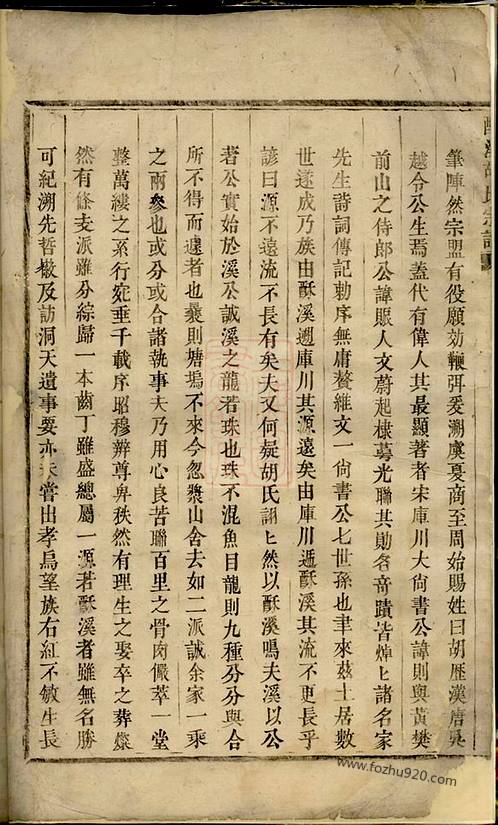 筆陣然宗盟有役願効鞭弭爰溯虞夏商至周始賜姓曰胡歷漢唐吳
越令公生焉蓋代有偉人其最顯著者宋庫川大尙書公諱則與黃樊
前山之侍郎公諱賑人文蔚起棣萼光聯其勛名竒蹟皆焯匕諸名家
先生詩詞傳記勅序無庸贅維文一尙書公七世孫也聿來兹土居數
世遂成乃族由酥溪遡庫川其源遠矣由庫川遞酥溪其流不更長乎
諺曰源不遠流不長有矣夫又何疑胡氏詡匕然以酥溪鳴夫溪以公
著公實始於溪公誠溪之龍若珠也珠不混魚目龍則九種分分與合
所不得而遽者也曩則塘塢不來今忽漿山舍去如二派誠余家一乘
之兩參也或分或合諸執事夫乃用心良苦聯百里之骨肉儼萃一堂
整萬縷之系行宛垂千載序昭穆辨尊卑秩然有理生之娶卒之葬燦
然有條支派雖分綜歸一本齒丁雖盛總屬一源若酥溪者雖無名勝
可紀溯先哲轍及訪洞天遺事要亦未嘗出孝烏望族右紅不敏生長
www.fozhu920.com